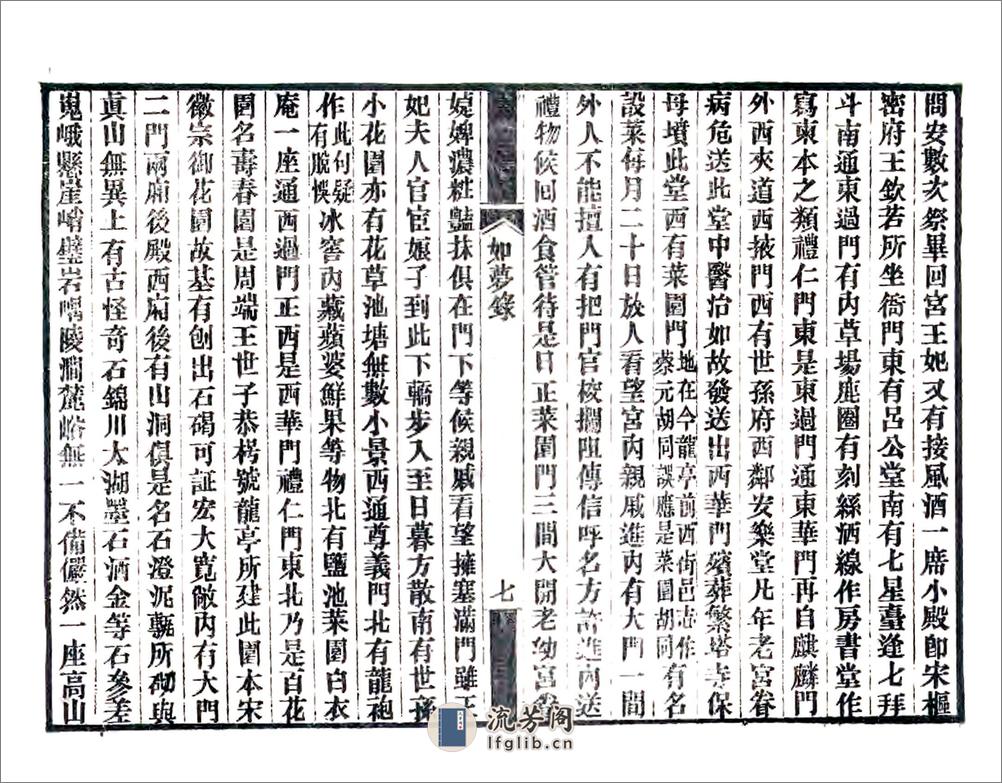 問安數次祭畢回宮王妃又有接風酒一席小殿卽宋樞
密府王欽若所坐衙門東有呂公堂南有七星臺逢七拜
斗南通東過門有內草場鹿圈有刻絲洒線作房書堂作
寫柬本之類禮仁門東是東過門通東華門再自麒麟門
外西夾道西掖門西有世孫府西鄰安樂堂凡年老宮眷
病危送此堂中醫治如故發送出西華門殯葬繁塔寺保
母墳此堂西有菜園門地在今龍亭前西街邑志作蔡元胡同誤應是菜園胡同有名
設菜每月二十日放人看望宮內親戚進內有大門一間
外人不能擅人有把門官校攔阻傳信呼名方許進內送
禮物候回酒食管待是日正菜園門三間大開老幼宮眷
如夢錄
七
媜婢濃粧豔抹俱在門下等候親戚看望擁塞滿門雖王
妃夫人官宦娘子到此下轎步入至日暮方散南有世孫
小花園亦有花草池塘無數小景西通尊義門北有龍袍
作此句疑有脫悞冰窖內藏蘋婆鮮果等物北有鹽池菜園白衣
庵一座通西過門正西是西華門禮仁門東北乃是百花
園名壽春園是周端王世子恭枵號龍亭所建此園本宋
徽宗御花園故基有刨出石碣可証宏大寬敞內有大門
二門兩廂後殿西廂後有山洞俱是名石澄泥甎所砌與
眞山無異上有古怪奇石錦川太湖墨石洒金等石參差
嵬峨懸崖峭壁岩嵎陵澗麓峪無一不備儼然一座高山
流芳阁
lfglib.cn